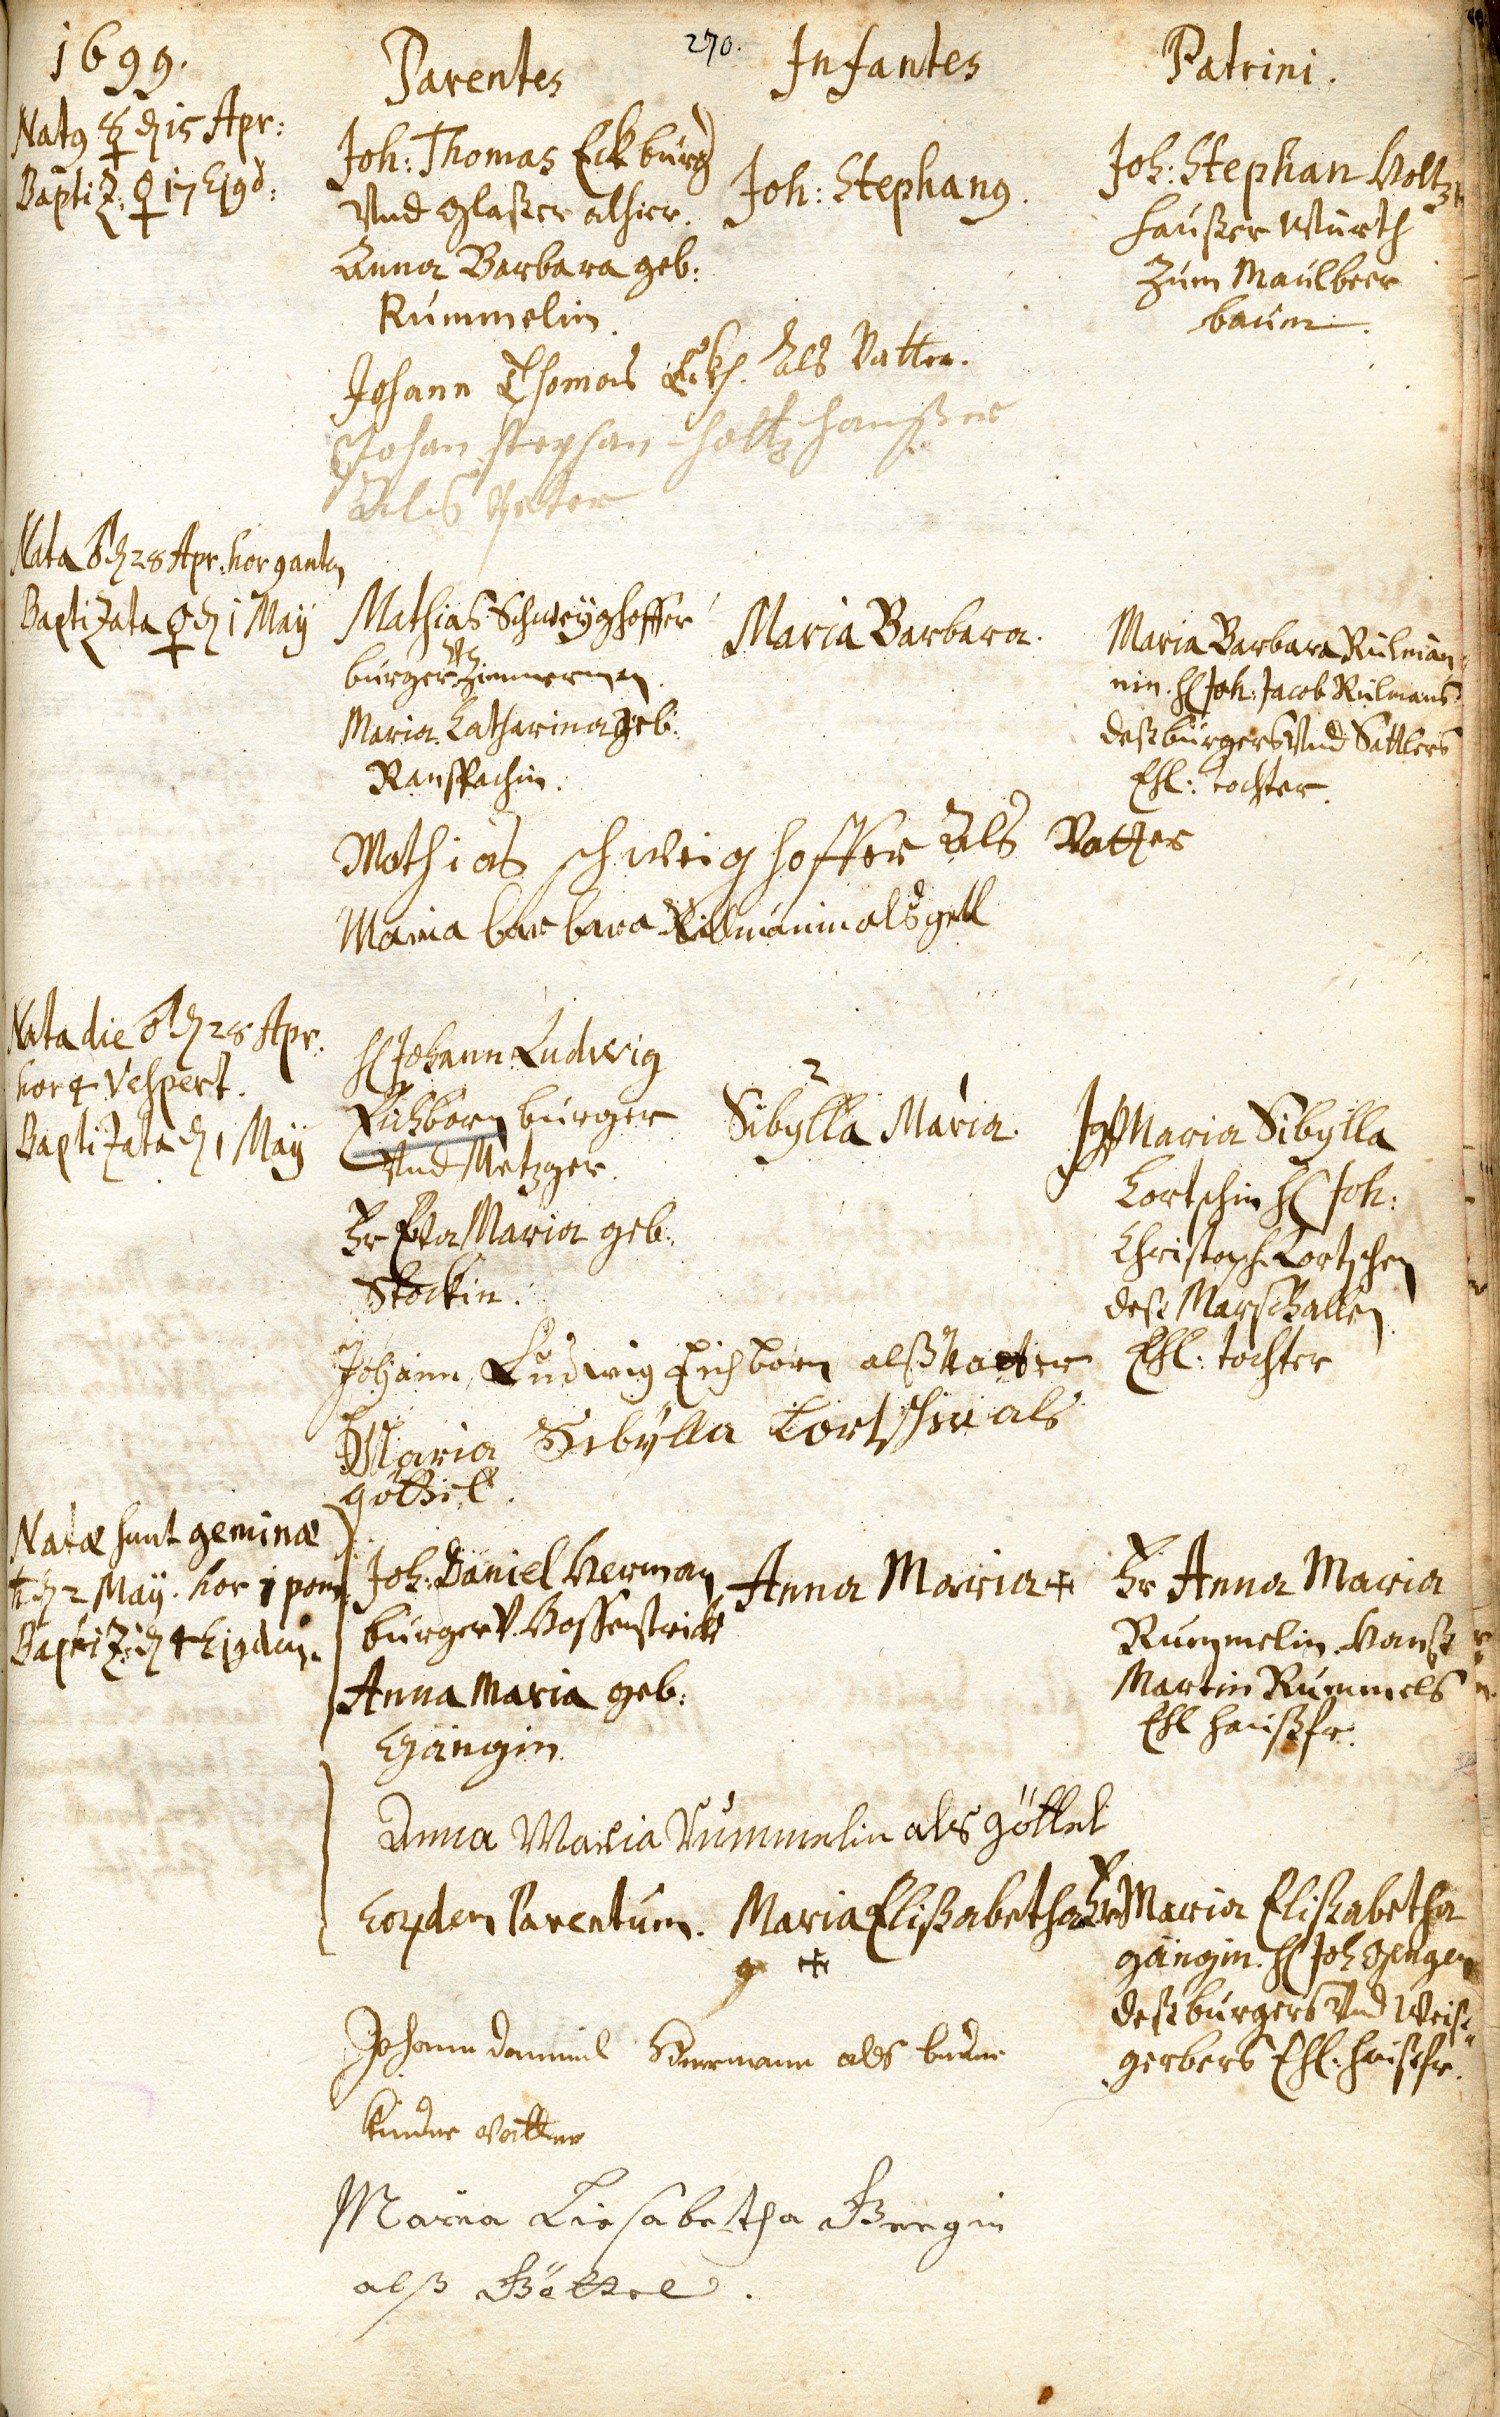 270.
1699.
Parentes
Infantes
Patrini.
Nat9 ☿ d 15 Apr:
Baptiz. ♀ 17 Ejgd:
Joh: Thomas Eck burg
Vnd glaßer alhier.
Anna Barbara geb:
Rümmelin.
Joh: Stephan9.
Joh: Stephan Holtz
haußer Würth
Zum Maulbeer
baum.
Johann Thomas Eckh. Als Vatter.
Johan stephan holtz haußer
Als
Nata ♂ d 28 Apr. hor 9 ant
Baptizata ♀ d 1 May
Mathias Schweyghoffer
burger Vd Zimmerman.
Maria Catharina geb:
Ranspachin.
Maria Barbara.
Maria Barbara Rülman
nin. H Joh: Jacob Rülmans
deß burgers Vnd Sattlers
Ehl: tochter.
Mathias schweig hoffer Als Vatter
Maria barbara als getl
Nata die ♂ d 28 Apr.
hor 4 Vespert.
Baptizata d 1 May
H Johann Ludwig
Eichborn burger
Vnd Metzger.
Fr Eva Maria geb:
Stöckin.
2
Sibylla Maria.
1
Jgf Maria Sibylla
Lortschin H Joh:
Christoph Lortschen
deß Marschallen
Ehl: tochter
Johann Ludwig Eichborn alß Vatter
Maria Sibÿlla Lortschin als
göttel.
Natæ sunt geminæ
♄ d 2 May. hor 1 pom.
Baptiz. d 4 Ejgdem.
Joh: Daniel Herman
burger V. Hossenstrickr
Anna Maria geb:
Gängin.
Anna Maria +
Fr Anna Maria
Rummelin. Hanß
Martin Rummels
Ehl haußfr.
Anna Maria Rümmelin als göttel
Eorzdem Parentum.
Maria Elißabetha
+
Fr Maria Elißabetha
gängin. H Joh Gengen
deß burgers Vnd Weiß
gerbers Ehl: haußfr.
Johann Danniel Herrmann als beyder
Kinder vatter
Maria Liesabetha Gengin
alß Göttel.